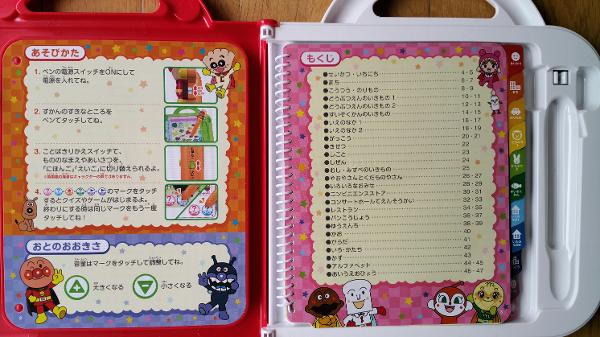 あそびかた
1. ペンの電源スイッチをONにして
電源を入れてね。
2. ずかんのすきなところを
ペンでタッチしてね。
3. ことばきりかえスイッチで、
もののなまえやあいさつを、
「にほんご」「えいご」に切り替えられるよ。
4. のマークをタッチ
するとクイズやゲームがはじまるよ。
終わりにする時は同じマークをもう一度
タッチしてね!
おとのおおきさ
音量はマークをタッチして調整してね。
大きくなる
小さくなる
もくじ
●せいかつ・いちにち 4-5
●まち 6-7
●こうつう・のりもの 8-9
●どうぶつえんのいきもの 1 10-11
●どうぶつえんのいきもの 2 12-13
●すいぞくかんのいきもの 14-15
●いえのなか 1 16-17
●いえのなか 2 18-19
●がっこう 20-21
●きせつ 22
●しごと 23
●しぜん 24
●むし・みずべのいきもの 25
●やおやさんとくだものやさん 26-27
●いろいろなおみせ 28-29
●コンビニエンスストア 30-31
●コンサートホールでえんそうかい 32-33
●レストラン 34-35
●パンこうじょう 36-37
●ゆうえんち 38-39
●かお 40
●からだ 41
●いろ・かたち 42
●かず 43
●アルファベット 44-45
●あいうえおひょう 46-47